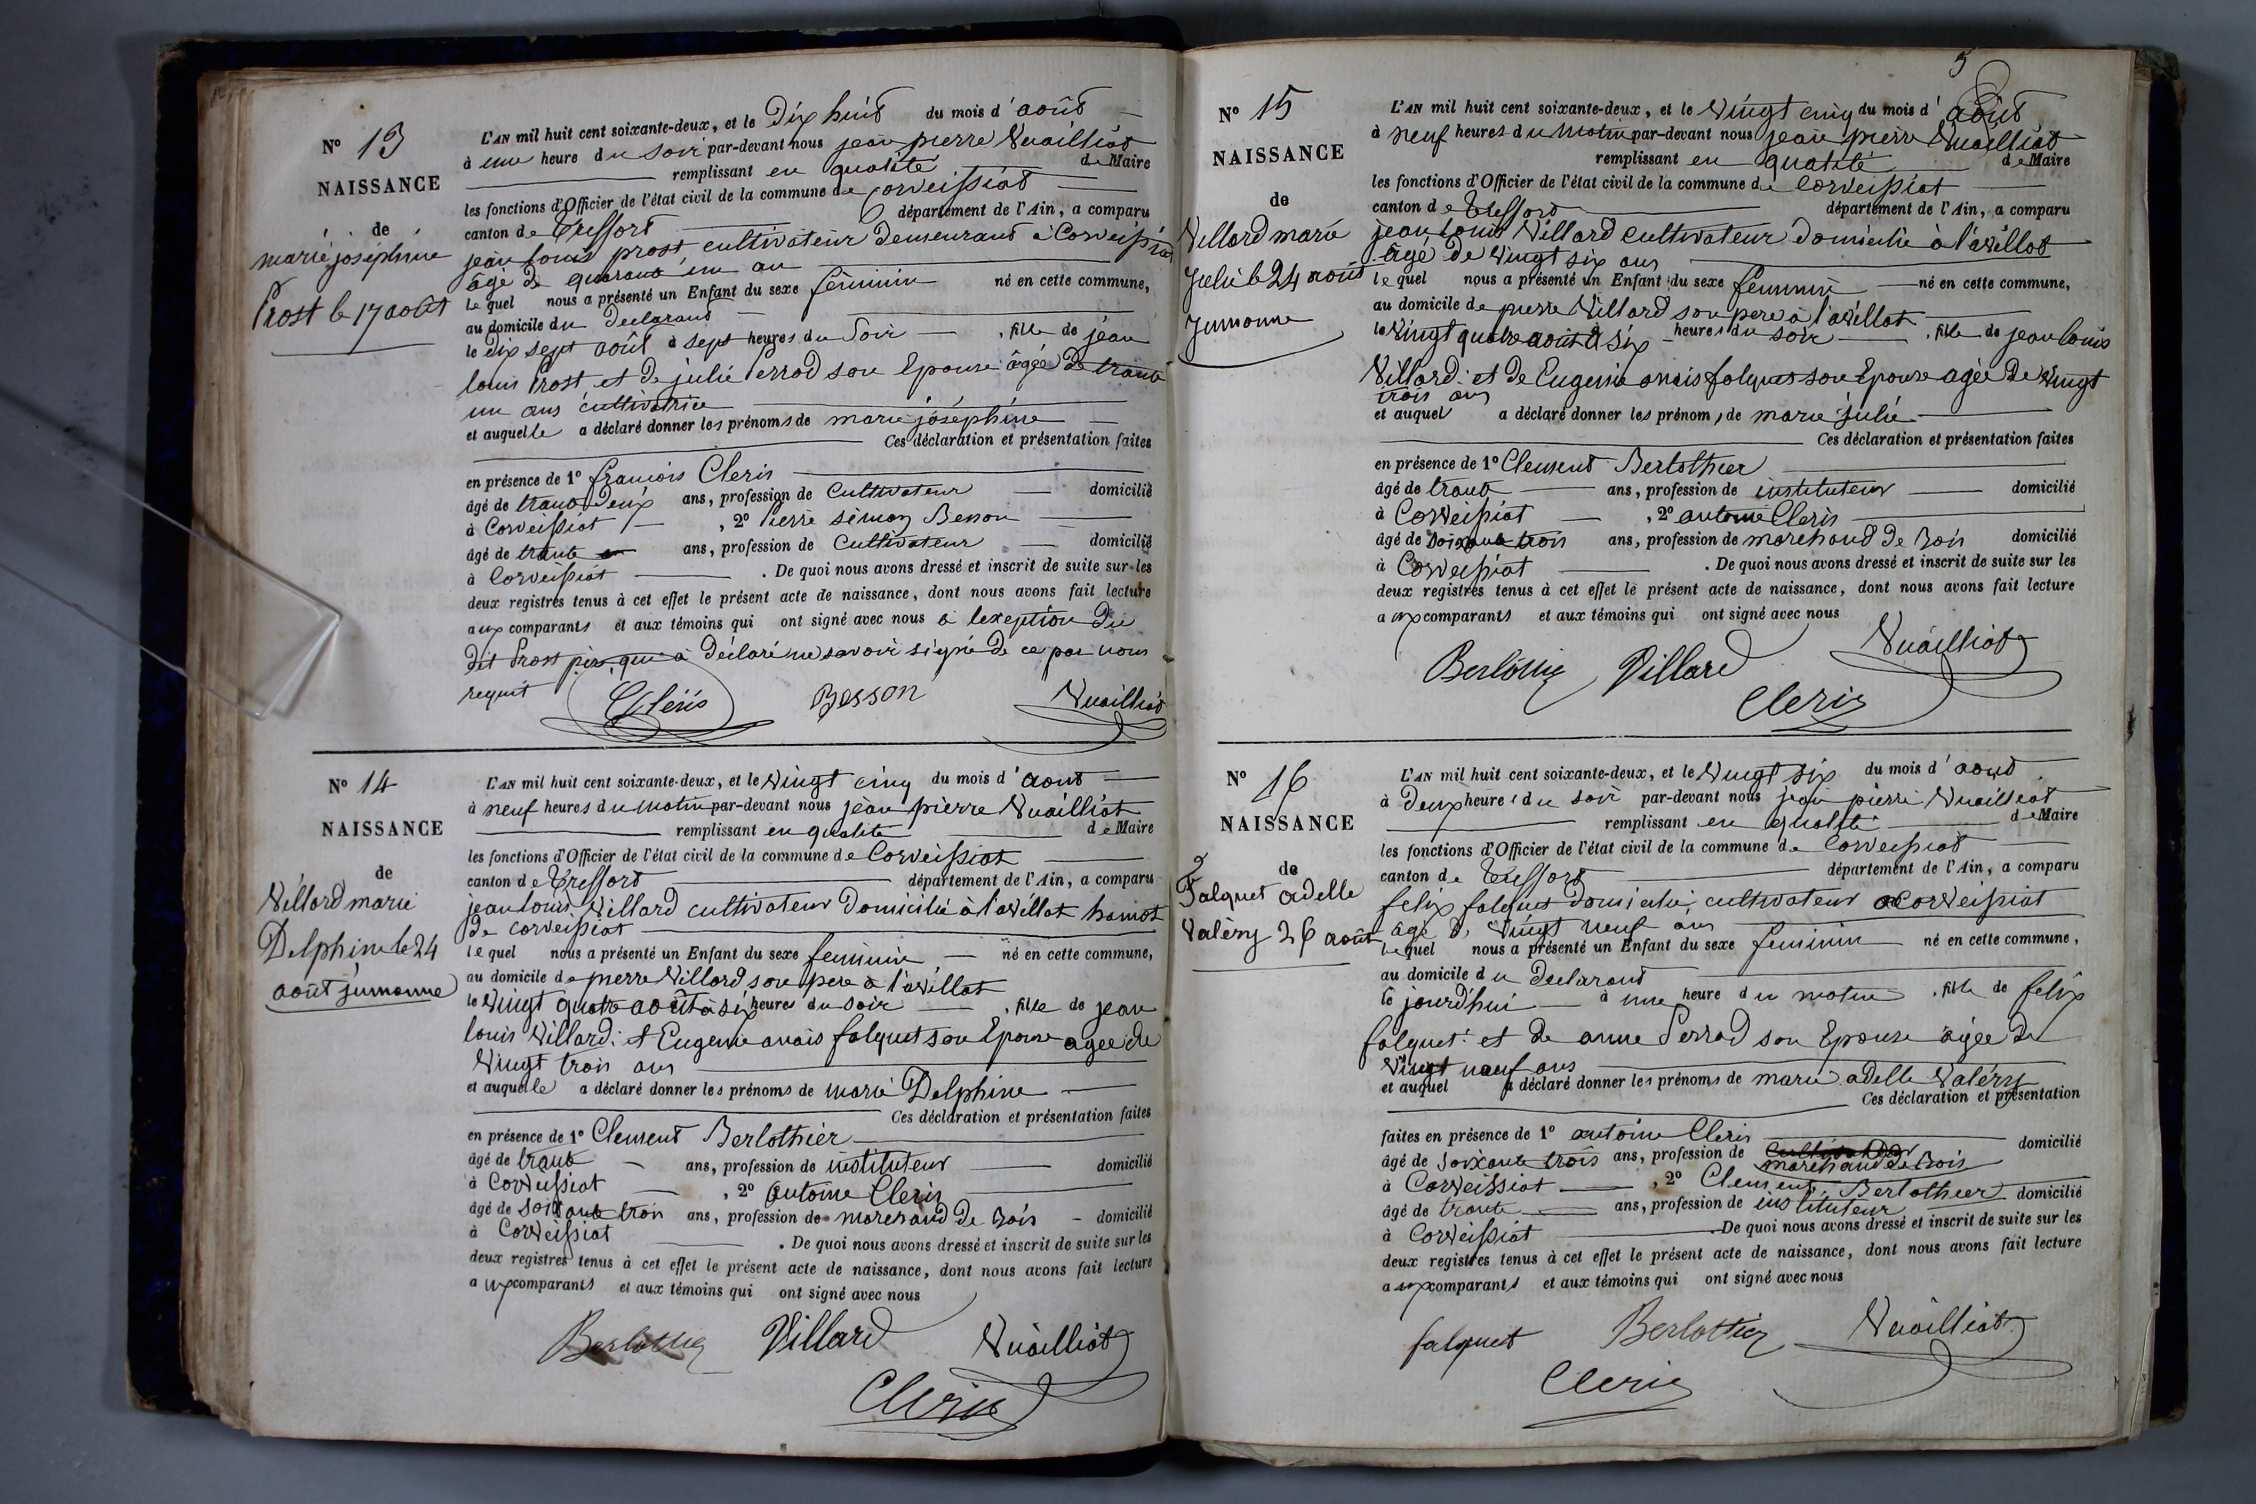 Nº 13
NAISSANCE
de
marie joséphine
Prost le 17 août
L'AN mil huit cent soixante-deux, et le Dix huit du mois d'août
à une heure du soir par-devant nous jean pierre Nuailliat
remplissant en qualité de Maire
les fonctions d'Officier de l'état civil de la commune de Corveissiat
canton de Treffort département de l'Ain, a comparu
jean louis prost cultivateur demeurant à Corveissiat
âgé de quarante un an
lequel nous a présenté un Enfant du sexe féminin né en cette commune,
au domicile du Déclarant
le dix sept août à sept heures du Soir, fille de jean
louis Prost et de julie Perrod son Epouse âgée de trente
un ans cultivatrice
et auquelle a déclaré donner les prénoms de marie joséphine
Ces déclaration et présentation faites
en présence de 1º françois Cleris
âgé de trente deux ans, profession de Cultivateur domicilié
à Corveissiat, 2º Pierre simon Besson
âgé de trante ans, profession de Cultivateur domicilié
à Corveissiat. De quoi nous avons dressé et inscrit de suite sur les
deux registres tenus à cet effet le présent acte de naissance, dont nous avons fait lecture
aux comparants et aux témoins qui ont signé avec nous à lexeption du
dit Prost père, qui a Déclaré ne savoir signé de ce par nous
requit
Cléris Besson Nuailliat
Nº 14
NAISSANCE
de
Villard marie
Delphine le 24
août jumonne
L'AN mil huit cent soixante-deux, et le Vingt cinq du mois d'aout
à neuf heures du matin par-devant nous jean pierre Nuailliat
remplissant en qualité de Maire
les fonctions d'Officier de l'état civil de la commune de Corveissiat
canton de Treffort département de l'Ain, a comparu
jean louis Villard cultivateur domicilié à l'avillat hamot
de corveissiat
lequel nous a présenté un Enfant du sexe feminin né en cette commune,
au domicile de pierre Villard son pere à l'avillat
le Vingt quatre août à six heures du soir, fille de jean
louis Villard et Eugenie anais falquet son Epouse agée de
Vingt trois ans
et auquelle a déclaré donner les prénoms de marie Delphine
Ces déclaration et présentation faites
en présence de 1º Clement Berlothier
âgé de trante ans, profession de instituteur domicilié
à Corveissiat, 2º antoine Cleris
âgé de soixante trois ans, profession de marchand de Bois domicilié
à Corveissiat. De quoi nous avons dressé et inscrit de suite sur les
deux registres tenus à cet effet le présent acte de naissance, dont nous avons fait lecture
aux comparants et aux témoins qui ont signé avec nous
Berlothier Villard Nuailliat
Cleris
5
Nº 15
NAISSANCE
de
Villard marie
Julie le 24 août
Jumonne
L'AN mil huit cent soixante-deux, et le Vingt cinq du mois d'août
à neuf heures du Matin par-devant nous jean pierre Nuailliat
remplissant en qualité de Maire
les fonctions d'Officier de l'état civil de la commune de Corveissiat
canton de Treffort département de l'Ain, a comparu
jean louis Villard cultivateur domicilié à l'avillat
âgé de Vingt six ans
lequel nous a présenté un Enfant du sexe feminin né en cette commune,
au domicile de pierre Villard son pere à l'avillat
le Vingt quatre août à six heures du soir, fille de jean louis
Villard et de Eugenie anais falquet son Epouse agée de Vingt
trois ans
et auquel a déclaré donner les prénoms, de marie julie
Ces déclaration et présentation faites
en présence de 1º Clement Berlothier
âgé de trante ans, profession de instituteur domicilié
à Corveissiat, 2º antoine Cleris
âgé de soixante trois ans, profession de marchand de Bois domicilié
à Corveissiat. De quoi nous avons dressé et inscrit de suite sur les
deux registres tenus à cet effet le présent acte de naissance, dont nous avons fait lecture
aux comparants et aux témoins qui ont signé avec nous
Berlothier Villard Nuailliat
Cleris
Nº 16
NAISSANCE
de
Falquet adelle
Valéry 26 août
L'AN mil huit cent soixante-deux, et le Vingt six du mois d'aout
à Deux heures du soir par-devant nous jean pierre Nuailliat
remplissant en qualité de Maire
les fonctions d'Officier de l'état civil de la commune de Corveissiat
canton de Treffort département de l'Ain, a comparu
felix falquet domicilié, cultivateur a corveissiat
âgé de Vingt neuf ans
lequel nous a présenté un Enfant du sexe feminin né en cette commune,
au domicile du Declarant
le jourd'hui à une heure du matin, fille de felix
falquet et de anne Perrod son Epouse agée de
Vingt neuf ans
et auquel a déclaré donner les prénoms de marie adelle Valéry
Ces déclaration et présentation
faites en présence de 1º antoine Cleris domicilié
âgé de soixante trois ans, profession de marchand de Bois
à Corveissiat, 2º Clement Berlothier domicilié
âgé de trante ans, profession de instituteur
à Corveissiat. De quoi nous avons dressé et inscrit de suite sur les
deux registres tenus à cet effet le présent acte de naissance, dont nous avons fait lecture
aux comparants et aux témoins qui ont signé avec nous
falquet Berlothier Nuailliat
Cleris